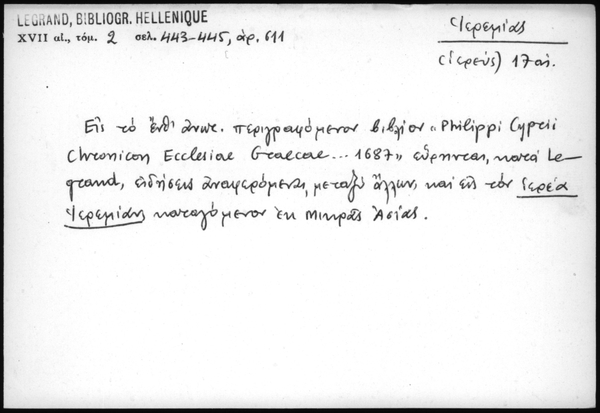 LEGRAND, BIBLIOGR. HELLENIQUE
XVII αἰ., τόμ. 2 σελ. 443-445, ἀρ. 611
Ἱερεμίας
(ἱερεύς) 17 αἰ.
Εἰς τό ἔνθ' ἄνωτ. περιγραφόμενον βιβλίον "Philippi Cyprii
Chronicon Ecclesiae Graecae... 1687" εὕρηνται, κατά Le-
grand, εἰδήσεις ἀναφερόμεναι, μεταξύ ἄλλων, καί εἰς τόν ἱερέα
Ἱερεμίαν καταγόμενον ἐκ Μικρᾶς Ἀσίας.